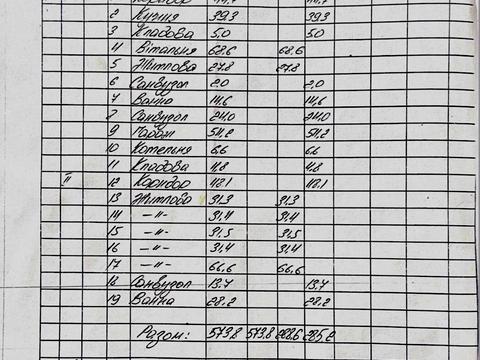 2 Кухня 39.3 39.3
3 Кладова 5.0 5.0
4 Вітальня 68.6 68.6
5 Житлова 27.8 27.8
6 Санвузол 2.0 2.0
7 Ванна 14.6 14.6
8 Санвузол 24.0 24.0
9 54.2 54.2
10 Котельня 6.6 6.6
11 Кладова 4.8 4.8
II 12 Коридор 112.1 112.1
13 Житлова 31.3 31.3
14 —"— 31.4 31.4
15 —"— 31.5 31.5
16 —"— 31.4 31.4
17 —"— 66.6 66.6
18 Санвузол 13.7 13.7
19 Ванна 28.2 28.2
Разом: 573.8 573.8 288.6 285.2